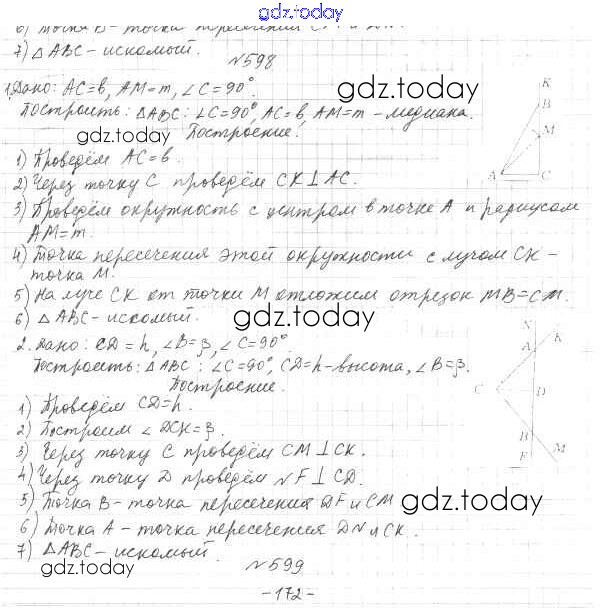 gdz.today
6) Точка B - точка пересечения
7) △ABC - искомый.
№598
1. Дано: AC=b, AM=m, ∠C=90°.
gdz.today
Построить: △ABC: ∠C=90°, AC=b, AM=m - медиана.
gdz.today
Построение.
1) Проведём AC=b.
2) Через точку C проведём CK⊥AC.
3) Проведём окружность с центром в точке A и радиусом
AM=m.
4) Точка пересечения этой окружности с лучом CK -
точка M.
5) На луче CK от точки M отложим отрезок MB=CM.
6) △ABC - искомый.
gdz.today
2. Дано: CD=h, ∠B=β, ∠C=90°.
Построить: △ABC: ∠C=90°, CD=h-высота, ∠B=β.
Построение.
1) Проведём CD=h.
2) Построим ∠DCK=β.
3) Через точку C проведём CM⊥CK.
4) Через точку D проведём NF⊥CD.
5) Точка B - точка пересечения DF и CM
gdz.today
6) Точка A - точка пересечения DN и CK.
7) △ABC - искомый.
gdz.today
№599
-172-
K
B
M
A
C
N
K
A
C
D
B
F
M